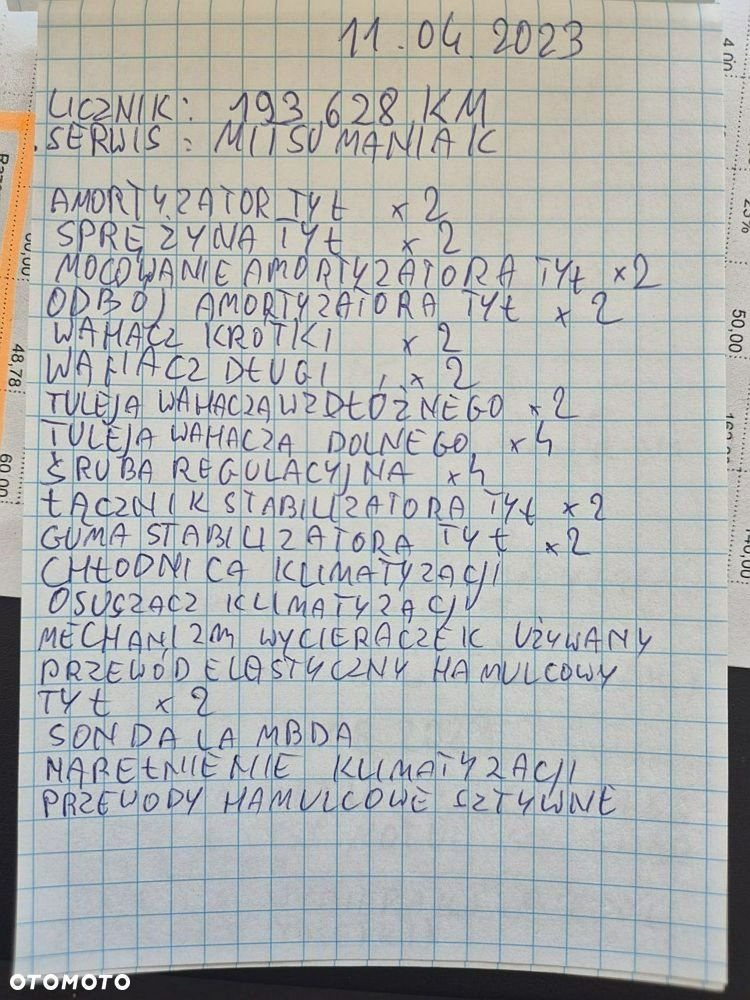 11.04.2023
LICZNIK: 193,628 KM
SERWIS: MITSUMANIAK
AMORTYZATOR TYŁ x2
SPRĘŻYNA TYŁ x2
MOCOWANIE AMORTYZATORA TYŁ x2
ODBÓJ AMORTYZATORA TYŁ x2
WAHACZ KRÓTKI x2
WAHACZ DŁUGI x2
TULEJA WAHACZA WZDŁÓŻNEGO x2
TULEJA WAHACZA DOLNEGO x4
ŚRUBA REGULACYJNA x4
ŁĄCZNIK STABILIZATORA TYŁ x2
GUMA STABILIZATORA TYŁ x2
CHŁODNICA KLIMATYZACJI
OSUSZACZ KLIMATYZACJI
MECHANIZM WYCIERACZEK UŻYWANY
PRZEWÓD ELASTYCZNY HAMULCOWY
TYŁ x2
SONDA LAMBDA
NAPEŁNIENIE KLIMATYZACJI
PRZEWODY HAMULCOWE SZTYWNE
4,00
23%
50,00
140,00
00,00
48,78
60,00
OTOMOTO